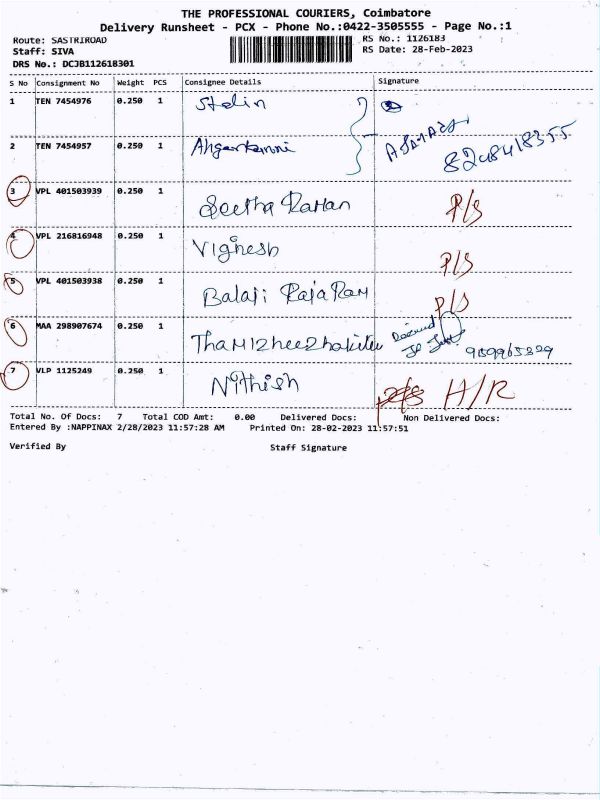 THE PROFESSIONAL COURIERS, Coimbatore
Delivery Runsheet - PCX - Phone No.:0422-3505555 - Page No.:1
Route: SASTRIROAD RS No.: 1126183
Staff: SIVA RS Date: 28-Feb-2023
DRS No.: DCJB112618301
S No Consignment No Weight PCS Consignee Details Signature
1 TEN 7454976 0.250 1 Stalin
2 TEN 7454957 0.250 1 8248418355
3 VPL 401503939 0.250 1 Seetha Raman P/S
4 VPL 216816948 0.250 1 Vignesh P/S
5 VPL 401503938 0.250 1 Balaji Raja Ram P/S
6 MAA 298907674 0.250 1
7 VLP 1125249 0.250 1 Nithish H/R
Total No. Of Docs: 7 Total COD Amt: 0.00 Delivered Docs: Non Delivered Docs:
Entered By :NAPPINAX 2/28/2023 11:57:28 AM Printed On: 28-02-2023 11:57:51
Verified By Staff Signature